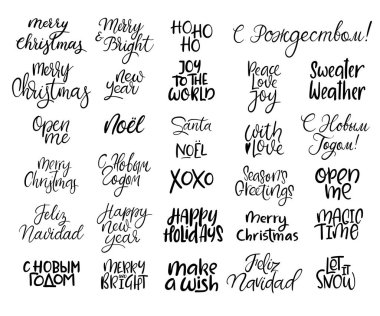 merry
Christmas
Merry &
Bright
HO HO
HO
С Рождеством!
Merry
Christmas
new
year
JOY
TO THE
WORLD
Peace
Love
Joy
Sweater
Weather
Open
me
Noël
Santa
NOËL
with
love
С Новым
Годом!
Merry
Christmas
С Новым
Годом
XOXO
Season's
Greetings
open
me
Feliz
Navidad
Happy
new
year
HAPPY
HOLIDAYS
merry
Christmas
MAGIC
TIME
С НОВЫМ
ГОДОМ
MERRY
AND
BRIGHT
make
a wish
Feliz
Navidad
LET IT
SNOW